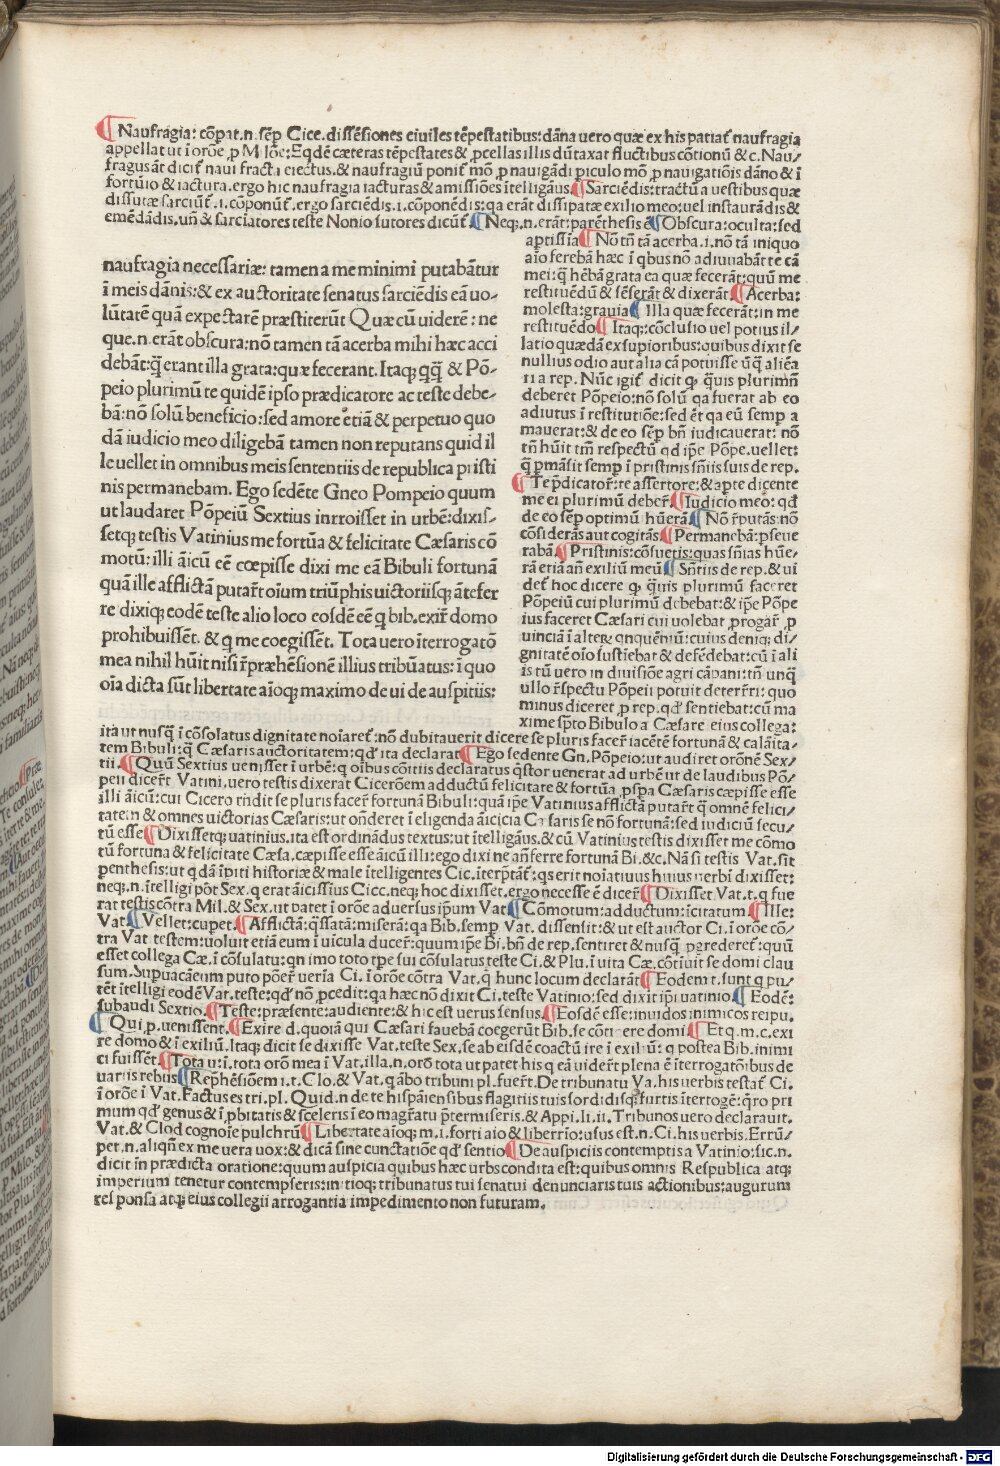 ¶ Naufragia: cōpat.n.sēp Cice.dissēsiones ciuiles tēpestatibus: dāna uero quæ ex his patiat̄ naufragia
appellat ut ī orōe ꝓ Milōe: Eqdē cæteras tēpestates & ꝓcellas illis dūtaxat fluctibus cōtionū & c. Nau/
fragus āt dicit̄ naui fracta eiectus. & naufragiū ponit̄ mō ꝓ nauigādi piculo mō ꝓ nauigatiōis dāno & ī
fortūio & iactura. ergo hic naufragia iacturas & amissiōes ītelligāus. ¶ Sarciēdis: tractū a uestibus quæ
dissutæ sarciūt̄.i.cōponūt̄. ergo sarciēdis.i.cōponēdis: qa erāt dissipatæ exilio meo: uel instaurādis &
emēdādis. uñ & sarciatores teste Nonio sutores dicūt̄. ¶ Neq;.n.erāt: parēthesis ē ¶ Obscura: oculta: sed
aptissīa ¶ Nō tñ tā acerba.i.nō tā iniquo
aīo ferebā hæc ī qbus nō adiuuabār̄ te cā
mei: q̄ hēbā grata ea quæ fecerāt: quū me
restituēdū & sēserāt & dixerāt ¶ Acerba:
molesta: grauia ¶ Illa quæ fecerāt: in me
restituēdo ¶ Itaq;: cōclusio uel potius il/
latio quædā ex supioribus: quibus dixit se
nullius odio aut alia cā potuisse ūq̄ aliēa
ri a rep. Nūc igit̄ dicit qƺ q̄uis plurimū
deberet Pōpeio: nō solū qa fuerat ab eo
adiutus ī restitutiōe: sed ēt qa eū semp a
mauerat: & de eo sēp bñ iudicauerat: nō
tñ hūit tm̄ respectū qd ip̄e Pōpe. uellet:
q̄ pmāsit semp ī pristinis sn̄iis suis de rep.
¶ Te p̄dicator̄: te assertore: & apte dicente
me ei plurimū deber̄. ¶ Iudicio meo: qd̄
de eo sēp optimū hūerā ¶ Nō r̄putās: nō
cōsiderās aut cogitās ¶ Permanebā: pseue
rabā. ¶ Pristinis: cōsuetis: quas sn̄ias hūe/
rā etiā añ exiliū meū ¶ Sn̄tiis de rep. & ui
det̄ hoc dicere qƺ q̄uis plurimū faceret
Pōpeiū cui plurimū debebat: & ip̄e Pōpe
ius faceret Cæsari cui uolebat ꝓrogar̄ ꝓ
uinciā ī alter̄ qnquēniū: cuius deniq; di/
gnitatē oīo sustiebat & defēdebat: cū ī ali
is tū uero in diuisiōe agri cāpani: tñ unq̄
ullo r̄spectu Pōpeii potuit deterr̄ri: quo
minus diceret ꝓ rep. qd̄ sentiebat: cū ma
xime sp̄to Bibulo a Cæsare eius collega:
naufragia necessariæ: tamen a me minimi putabāntur
ī meis dānis: & ex auctoritate senatus sarciēdis eā uo-
lūtatē quā expectarē præstiterūt Quæ cū uiderē: ne
que.n.erāt obscura: nō tamen tā acerba mihi hæc acci
debāt: q̄ erant illa grata: quæ fecerant. Itaq; qq̄ & Pō-
peio plurimū te quidē ipso prædicatore ac teste debe-
bā: nō solū beneficio: sed amore etiā & perpetuo quo
dā iudicio meo diligebā tamen non reputans quid il
le uellet in omnibus meis sententiis de republica pristi
nis permanebam. Ego sedēte Gneo Pompeio quum
ut laudaret Pōpeiū Sextius inrroisset in urbē: dixis-
setq; testis Vatinius me fortūa & felicitate Cæsaris cō
motū: illi aīcū eē cœpisse dixi me eā Bibuli fortunā
quā ille afflictā putar̄t oīum triūphis uictoriisq; āteфer
re dixiq; eodē teste alio loco eosdē eē q bib. exir̄ domo
prohibuissēt. & q me coegissēt. Tota uero īterrogatō
mea nihil hūit nisi r̄præhēsionē illius tribūatus: ī quo
oīa dicta sūt libertate aīoq; maximo de ui de auspitiis:
ita ut nusq̄ ī cōsolatus dignitate noīaret̄: nō dubitauerit dicere se pluris facer̄ iacētē fortunā & calāita/
tem Bibuli: q̄ Cæsaris auctoritatem: qd̄ ita declarat. ¶ Ego sedente Gn. Pōpeio: ut audiret orōnē Sex/
tii. ¶ Quū Sextius uenisset ī urbē: q oībus cōitiis declaratus q̄stor uenerat ad urbē ut de laudibus Pō/
peii dicer̄t Vatini. uero testis dixerat Cicerōem adductū felicitate & fortūa ꝓspa Cæsaris cœpisse esse
illi āicū: cui Cicero rn̄dit se pluris facer̄ fortunā Bibuli: quā ip̄e Vatinius afflictā putar̄t q̄ omnē felici/
tatem & omnes uictorias Cæsaris: ut ōnderet̄ ī eligenda aīcicia Cæsaris se nō fortunā: sed iudiciū secu/
tū esse ¶ Dixissetq; uatinius. ita est ordinādus textus: ut ītelligāus. & cū Vatinius testis dixisset me cōmo
tū fortuna & felicitate Cæsa. cæpisse esse āicū illi: ego dixi ne anferre fortunā Bi. & c. Nā si testis Vat. sit
penthesis: ut qdā īpiti historiæ & male ītelligentes Cic. īterp̄tāt̄: qserit noīatiuus huius uerbi dixisset:
neq;.n.ītelligi pōt Sex. q erat āicissīus Cicc. neq; hoc dixisset. ergo necesse ē dicer̄ ¶ Dixisset Vat.t.q fue
rat testis cōtra Mil. & Sex. ut patet ī orōe aduersus ip̄um Vat ¶ Cōmotum: adductum: īcitatum ¶ Ille:
Vat. ¶ Vellet: cupet. ¶ Afflictā: q̄ssatā: miserā: qa Bib. semp Vat. dissensit: & ut est auctor Ci. ī orōe cō/
tra Vat. testem: uoluit etiā eum ī uicula ducer̄: quum ip̄e Bi. bñ de rep. sentiret & nusq̄ ꝓgrederet̄: quū
esset collega Cæ. ī cōsulatu: qn imo toto tpe sui cōsulatus teste Ci. & Plu. ī uita Cæ. cōtīuit se domi clau
sum. Supuacāeum puto pōer̄ uerīa Ci. ī orōe cōtra Vat. q̄ hunc locum declarāt ¶ Eodem t. sunt q pu/
tēt ītelligi eodē Vat. teste: qd̄ nō ꝓcedit: qa hæc nō dixit Ci. teste Vatinio: sed dixit ip̄i uatinio ¶ Eodē:
subaudi Sextio. ¶ Teste: præsente: audiente: & hic est uerus sensus. ¶ Eosdē esse: inuidos inimicos reipu.
¶ Qui p. uenissent. ¶ Exire d. quoīa qui Cæsari fauebā coegerūt Bib. se cōtīere domi ¶ Et q. m.c. exi
re domo & ī exiliū. Itaq; dicit se dixisse Vat. teste Sex. se ab eisdē coactū ire ī exiliū: q postea Bib. inimi
ci fuissēt. ¶ Tota u: ī. tota orō mea ī Vat. illa.n.orō tota ut patet his q eā uider̄t plena ē īterrogatōibus de
uariis rebus ¶ Rep̄hēsiōem i.t. Clo. & Vat. q ābo tribuni pl. fuer̄t. De tribunatu Va. his uerbis testat̄ Ci.
ī orōe ī Vat. Factus es tri. pl. Quid.n.de te hispāiensibus flagitiis tuis sordidisq; furtis īterrogē: q̄ro pri
mum qd̄ genus & ī ꝓbitatis & sceleris ī eo magr̄atu p̄termiseris. & Appi. li. ii. Tribunos uero declarauit.
Vat. & Clod cognoīe pulchrū ¶ Libertate aīoq; m.i. forti aīo & liberrīo: usus est.n. Ci. his uerbis. Errū/
pet.n.aliqn̄ ex me uera uox: & dicā sine cunctatiōe qd̄ sentio ¶ De auspiciis contemptis a Vatinio: sic.n.
dicit in prædicta oratione: quum auspicia quibus hæc urbs condita est: quibus omnis Respublica atq;
imperium tenetur contempseris: initioq; tribunatus tui senatui denunciaris tuis actionibus: augurum
responsa atq; eius collegii arrogantia impedimento non futuram.
Digitalisierung gefördert durch die Deutsche Forschungsgemeinschaft - DFG